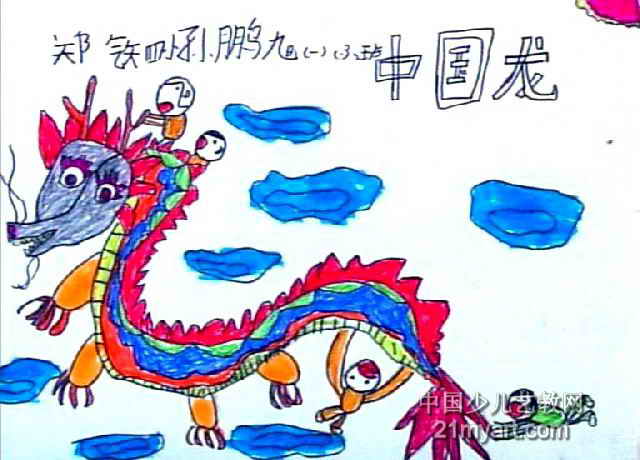 郑 铁四小 孙鹏九 (一)(3)班
中国龙
中国少儿艺教网
21myart.com